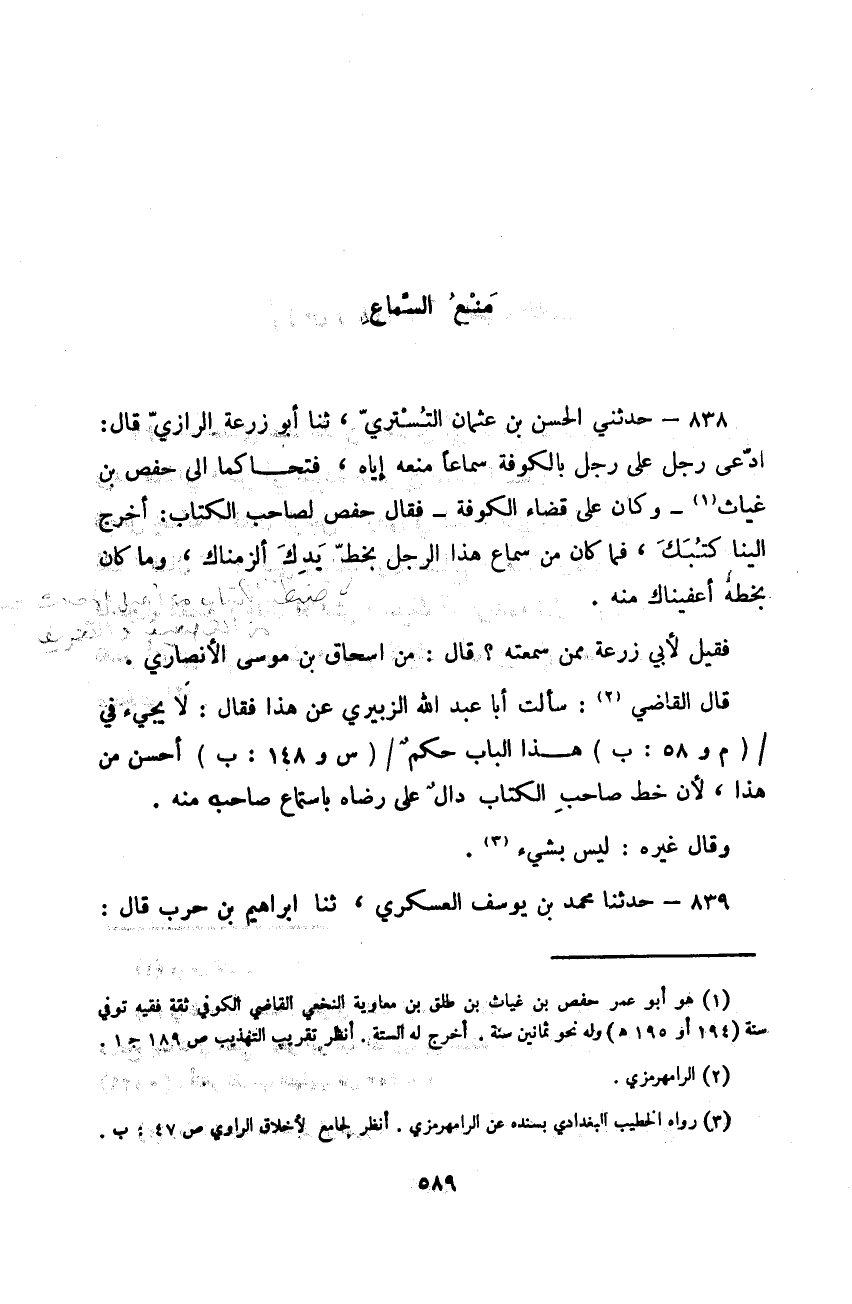 مَنْعُ السَّماع
٨٣٨ – حدثني الحسن بن عثمان التُسْتريّ ، ثنا أبو زرعة الرازيّ قال:
ادّعى رجل على رجل بالكوفة سماعاً منعه إياه ، فتحـاكما الى حفص بن
غياث(١) – وكان على قضاء الكوفة – فقال حفص لصاحب الكتاب: أخرج
الينا كتُبَكَ ، فما كان من سماع هذا الرجل بخطّ يَدِكَ ألزمناك ، وما كان
بخطهُ أعفيناك منه .
فقيل لأبي زرعة ممن سمعته ؟ قال : من اسحاق بن موسى الأنصاري .
قال القاضي (٢) : سألت أبا عبد الله الزبيري عن هذا فقال : لَا يجيء في
/ ( م و ٥٨ : ب ) هـذا الباب حكمٌ / ( س و ١٤٨ : ب ) أحسن من
هذا ، لأن خط صاحبِ الكتاب دالٌ على رضاه باستماع صاحبه منه .
وقال غيره : ليس بشيء (٣) .
٨٣٩ – حدثنا محمد بن يوسف العسكري ، ثنا ابراهيم بن حرب قال :
(١) هو أبو عمر حفص بن غياث بن طلق بن معاوية النخعي القاضي الكوفي ثقة فقيه توفي
سنة (١٩٤ أو ١٩٥ ه) وله نحو ثمانين سنة . أخرج له الستة . أنظر تقريب التهذيب ص ١٨٩ ج ١ .
(٢) الرامهرمزي .
(٣) رواه الخطيب البغدادي بسنده عن الرامهرمزي . أنظر الجامع لأخلاق الراوي ص ٤٧ : ب .
٥٨٩